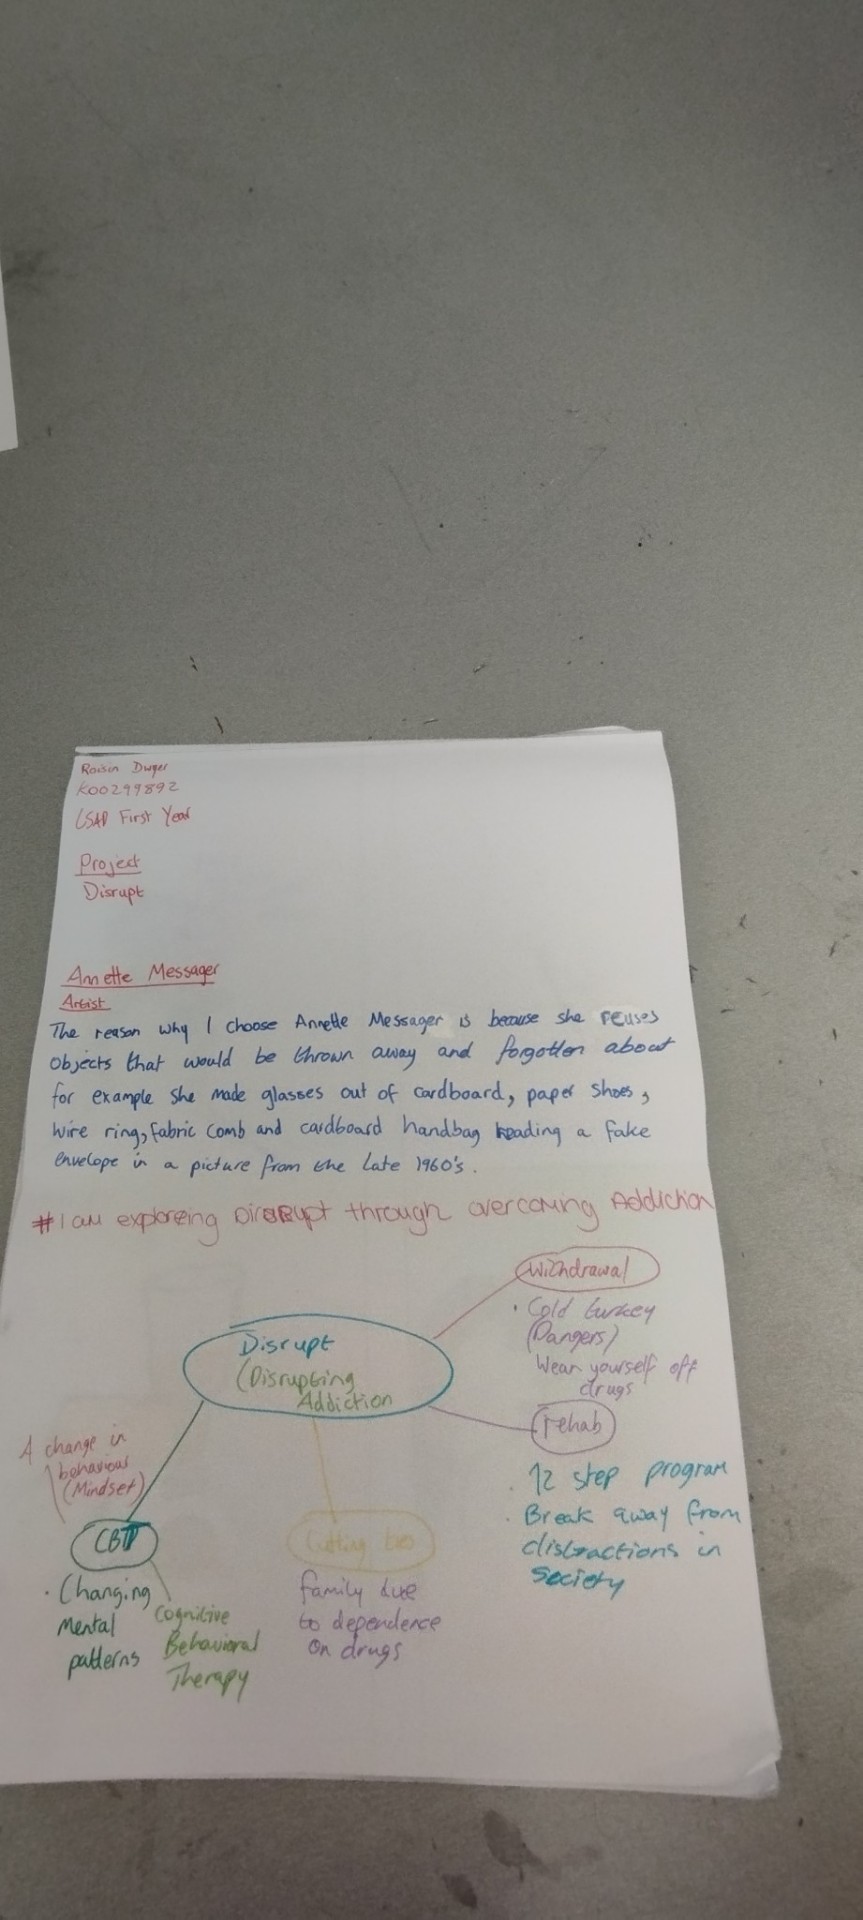 Roisin Dwyer
K00299892
LSAD First Year
Project
Disrupt
Annette Messager
Artist
The reason why I choose Annette Messager is because she reuses
objects that would be thrown away and forgotten about
for example she made glasses out of cardboard, paper shoes,
wire ring, fabric comb and cardboard handbag leading a fake
envelope in a picture from the late 1960's.
#I am exploreing Disrupt through overcoming Addiction
Withdrawal
• Cold turkey
(Dangers)
Wean yourself off
drugs
Disrupt
(Disrupting
Addiction
rehab
. 12 step program
. Break away from
distractions in
society
A change in
behaviour
(Mindset)
CBT
• Changing
mental
patterns
Cognitive
Behavioral
Therapy
Cutting ties
family due
to dependence
on drugs